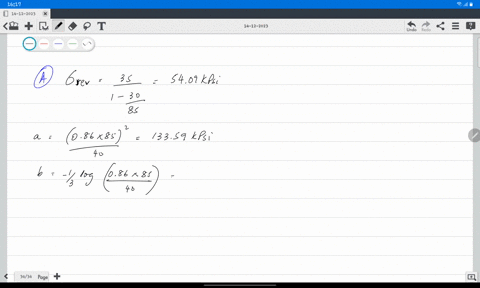 16:17
14-12-2023
14-12-2023
Undo
Redo
A σrev = 35 / (1 - 30/85) = 54.09 kPsi
a = (0.86 x 85)² / 40 = 133.59 kPsi
b = -1/3 log (0.86 x 85 / 40) =
34/34 Page